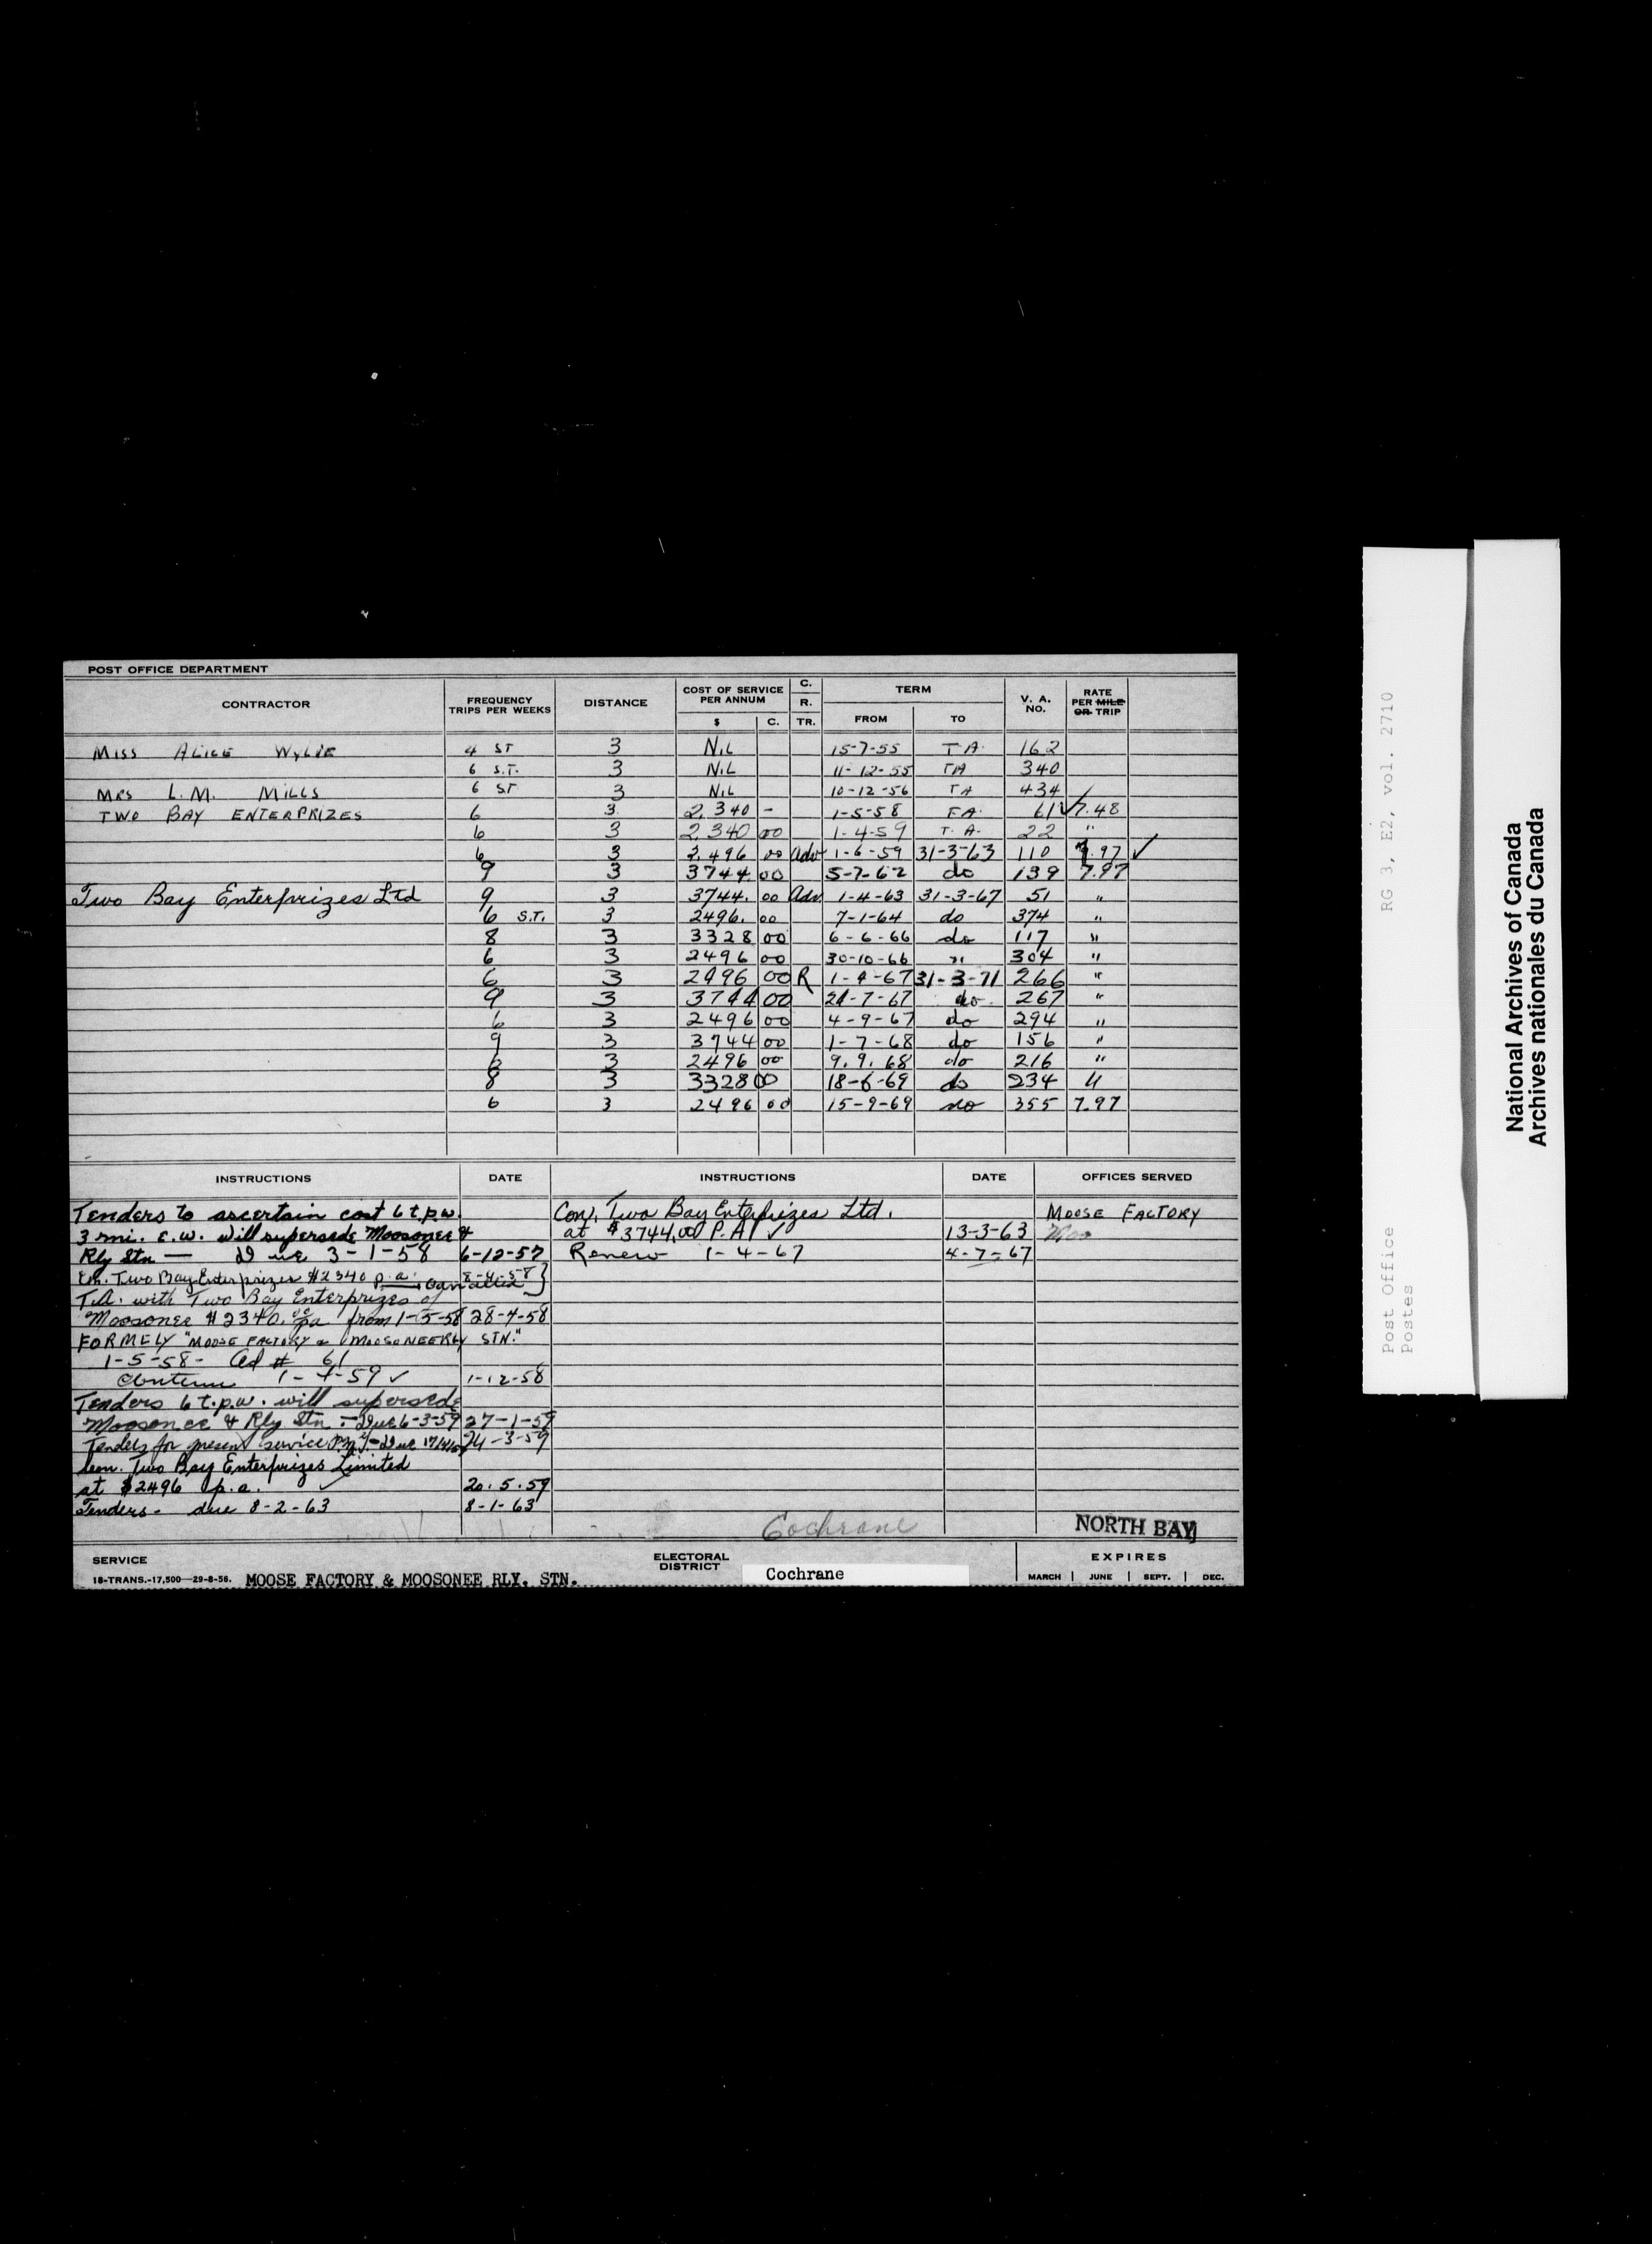 POST OFFICE DEPARTMENT
CONTRACTOR FREQUENCY TRIPS PER WEEKS DISTANCE COST OF SERVICE PER ANNUM $ C. C. R. TR. TERM FROM TO V. A. NO. RATE PER MILE OR TRIP
MISS ALICE WYLIE 4 ST 3 NIL 15-7-55 T A. 162
6 S.T. 3 NIL 11-12-55 TA 340
MRS L.M. MILLS 6 ST 3 NIL 10-12-56 TA 434
TWO BAY ENTERPRIZES 6 3. 2,340 - 1-5-58 T.A. 61 ✓ 7.48
6 3 2,340 00 1-4-59 T. A. 22 "
6 3 2,496 00 Adv 1-6-59 31-3-63 110 7.97 ✓
9 3 3744 00 5-7-62 do 139 7.97
Two Bay Enterprizes Ltd 9 3 3744. 00 Adv. 1-4-63 31-3-67 51 "
6 S.T. 3 2496. 00 7-1-64 do 374 "
8 3 3328 00 6-6-66 do 117 "
6 3 2496 00 30-10-66 " 304 "
6 3 2496 00 R 1-4-67 31-3-71 266 "
9 3 3744 00 21-7-67 do 267 "
6 3 2496 00 4-9-67 do 294 "
9 3 3744 00 1-7-68 do 156 "
6 3 2496 00 9.9.68 do 216 "
8 3 3328 00 18-6-69 do 234 "
6 3 2496 00 15-9-69 do 355 7.97
INSTRUCTIONS DATE INSTRUCTIONS DATE OFFICES SERVED
Tenders to ascertain cost 6 t.p.w. Con. Two Bay Enterprizes Ltd. MOOSE FACTORY
3 mi. e.w. will supersede Moosonee & at $3744.00 P.A. ✓ 13-3-63
Rly Stn — Due 3-1-58 6-12-57 Renew 1-4-67 4-7-67
Con. Two Bay Enterprizes $2340 p.a. Cancelled 8-4-58
T.A. with Two Bay Enterprizes of
Moosonee $2340.00 pa from 1-5-58 28-4-58
FORMELY "MOOSE FACTORY & MOOSONEE RLY STN."
1-5-58- Ad # 61
Continue 1-4-59 ✓ 1-12-58
Tenders 6 t.p.w. will supersede
Moosonee & Rly Stn - Due 6-3-59 27-1-59
Tenders for present service Due 17/4/59 24-3-59
Con. Two Bay Enterprizes Limited
at $2496 p.a. ✓ 20.5.59
Tenders - due 8-2-63 8-1-63
Cochrane NORTH BAY
SERVICE ELECTORAL DISTRICT EXPIRES
18-TRANS.-17,500—29-8-56. MOOSE FACTORY & MOOSONEE RLY. STN. Cochrane MARCH | JUNE | SEPT. | DEC.
Post Office RG 3, E2, vol. 2710
Postes
National Archives of Canada
Archives nationales du Canada